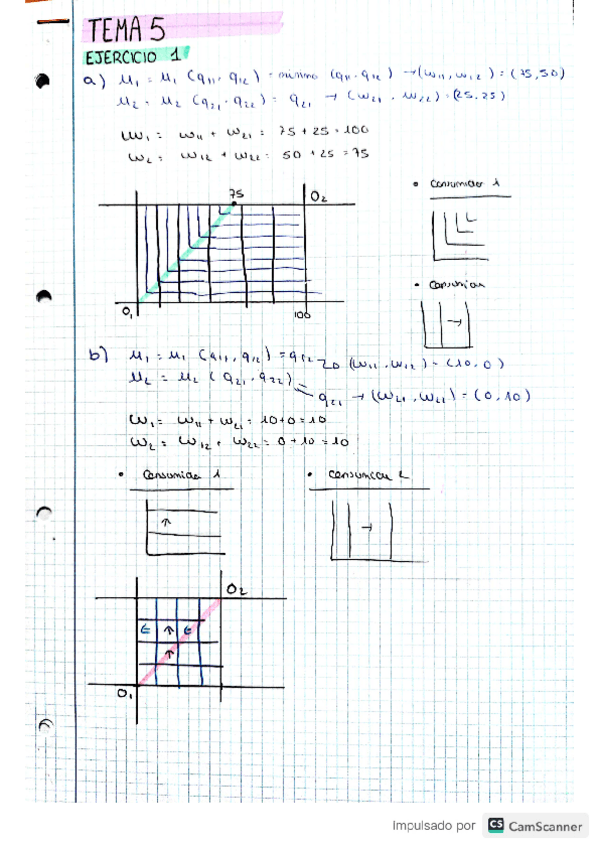 TEMA 5
EJERCICIO 1
a) u₁ = u₁ (q₁₁, q₁₂) = mínimo (q₁₁, q₁₂) → (w₁₁, w₁₂) = (75, 50)
u₂ = u₂ (q₂₁, q₂₂) = q₂₁ → (w₂₁, w₂₂) = (25, 25)
w₁ = w₁₁ + w₂₁ = 75 + 25 = 100
w₂ = w₁₂ + w₂₂ = 50 + 25 = 75
75
O₂
• Consumidor 1
• Consumidor
O₁
100
b) u₁ = u₁ (q₁₁, q₁₂) = q₁₂ → (w₁₁, w₁₂) = (10, 0)
u₂ = u₂ (q₂₁, q₂₂) =
q₂₁ → (w₂₁, w₂₂) = (0, 10)
w₁ = w₁₁ + w₂₁ = 10 + 0 = 10
w₂ = w₁₂ + w₂₂ = 0 + 10 = 10
• Consumidor 1
• Consumidor 2
O₂
O₁
Impulsado por CS CamScanner